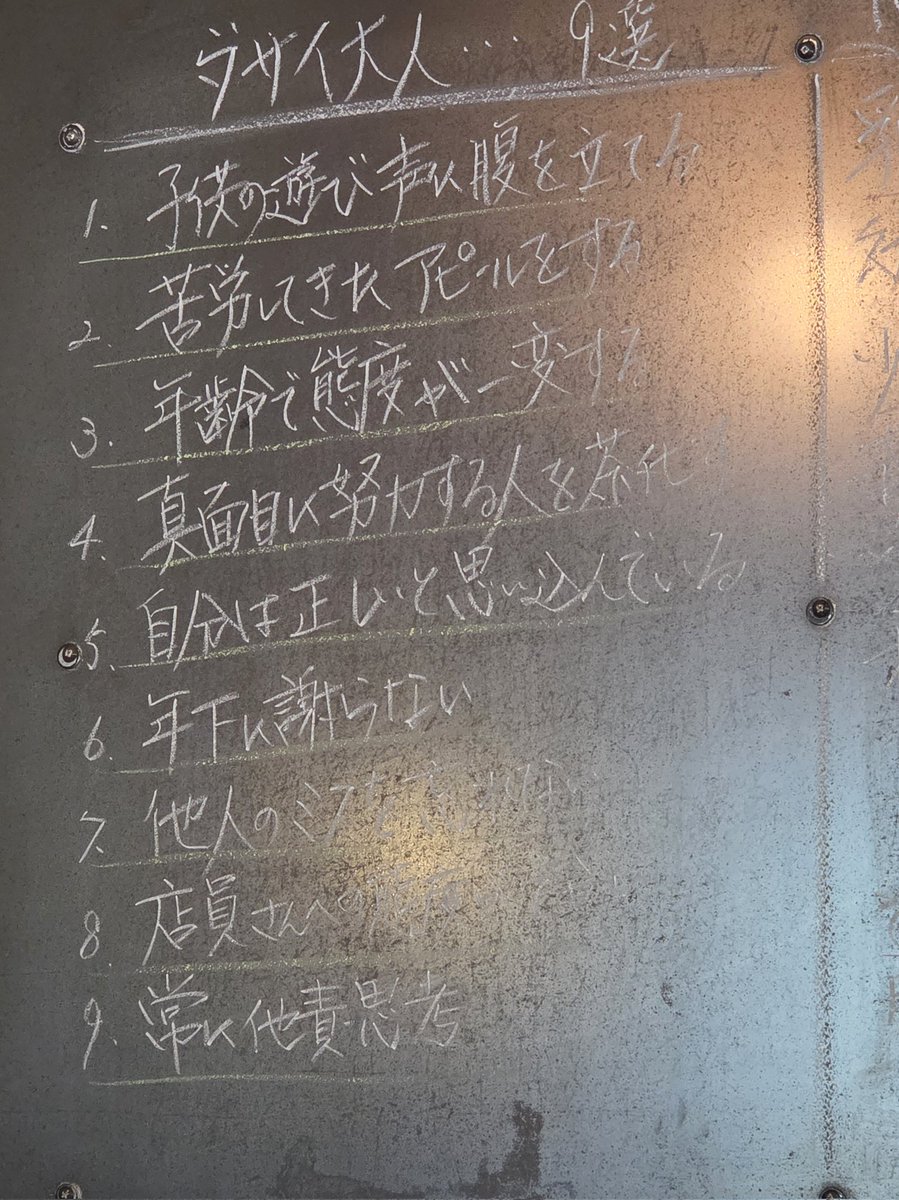 ダサイ大人… 9選
1. 子供の遊び声に腹を立てる
2. 苦労してきたアピールをする
3. 年齢で態度が一変する
4. 真面目に努力する人を茶化す
5. 自分は正しいと思い込んでいる
6. 年下に謝らない
7. 他人のミスを
8. 店員さんへの態度
9. 常に他責思考